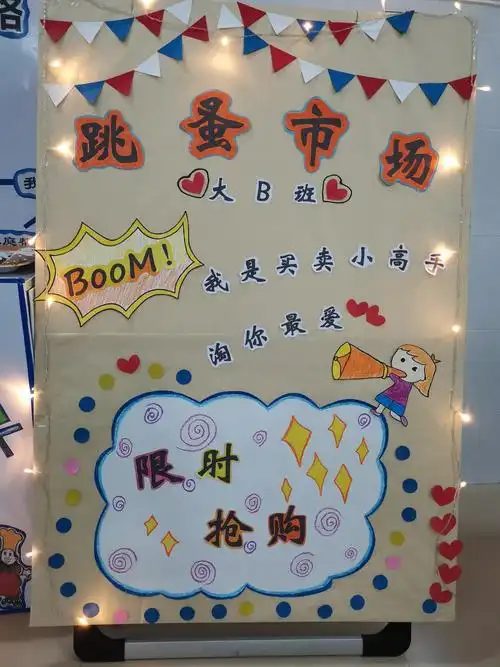 跳蚤市场
大B班
BOOM!
我是买卖小高手
淘你最爱
限时
抢购